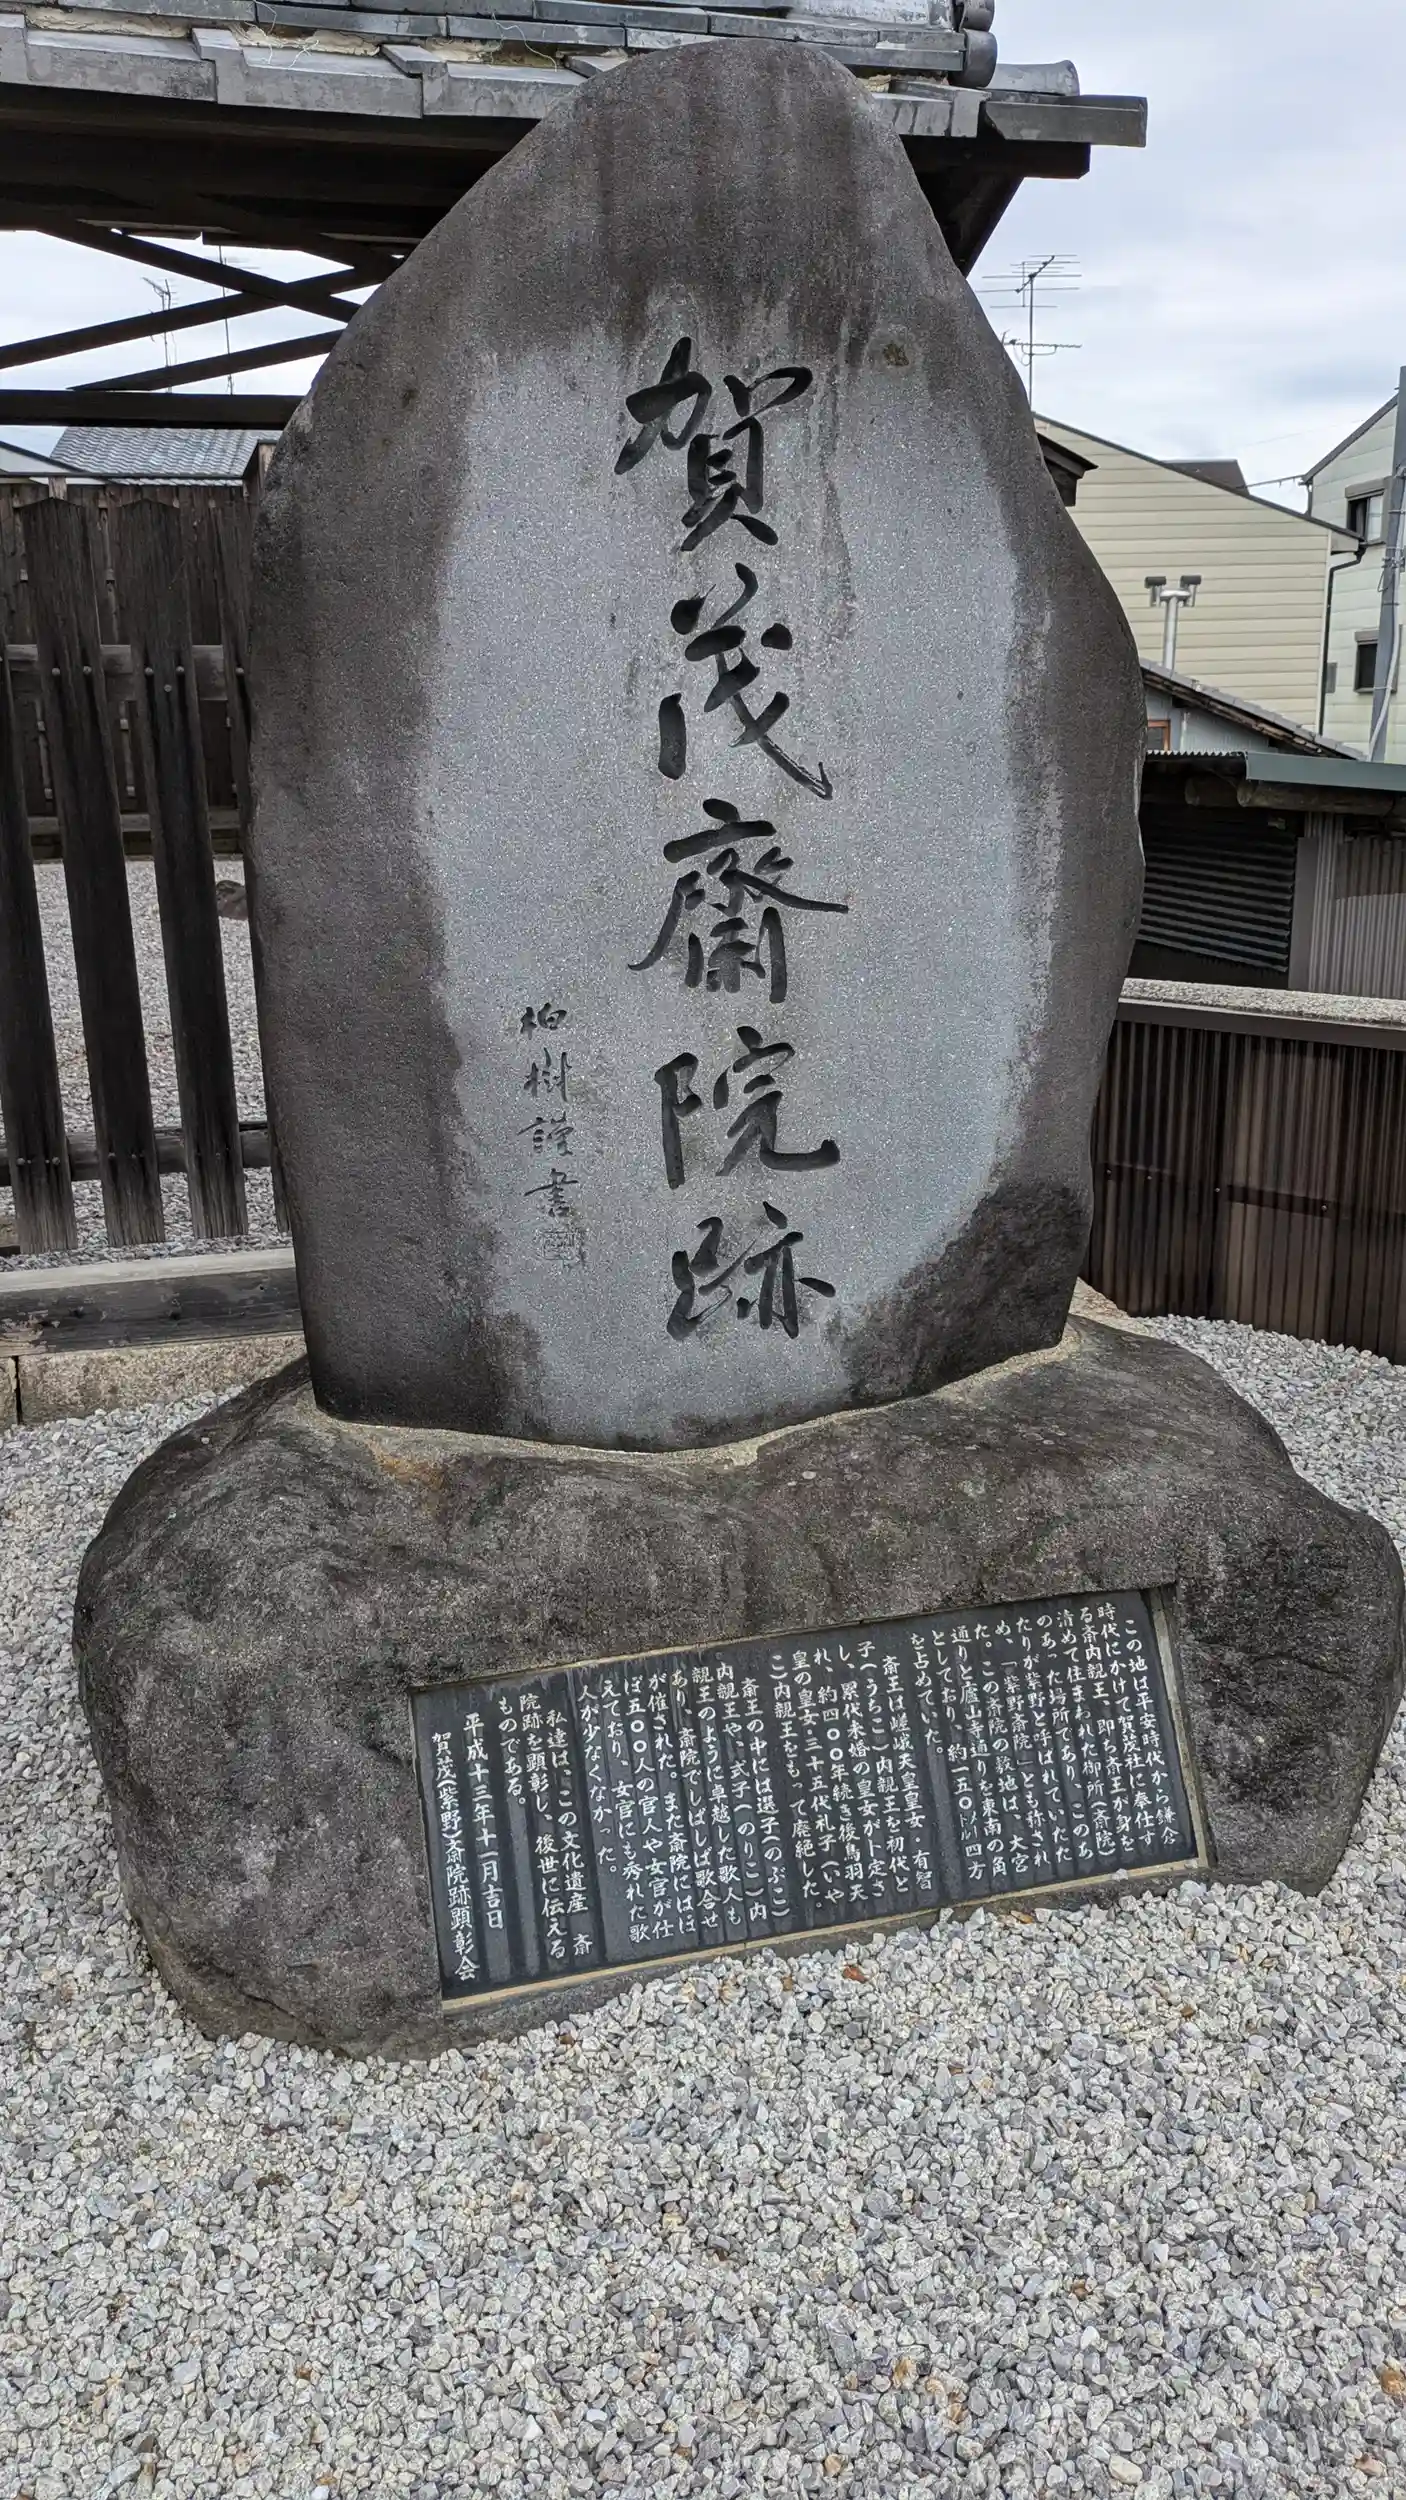 賀茂齋院跡
柏樹謹書
この地は平安時代から鎌倉
時代にかけて賀茂社に奉仕す
る斎内親王、即ち斎王が身を
清めて住まわれた御所(斎院)
のあった場所であり、このあ
たりが紫野と呼ばれていたた
め、「紫野斎院」とも称され
た。この斎院の敷地は、大宮
通りと廬山寺通りを東南の角
としており、約一五〇メートル四方
を占めていた。
斎王は嵯峨天皇皇女・有智
子(うちこ)内親王を初代と
し、累代未婚の皇女が卜定さ
れ、約四〇〇年続き後鳥羽天
皇の皇女・三十五代礼子(いや
こ)内親王をもって廃絶した。
斎王の中には選子(のぶこ)内
内親王や、式子(のりこ)内
親王のように卓越した歌人も
あり、斎院でしばしば歌合せ
が催された。また斎院にはほ
ぼ五〇〇人の官人や女官が仕
えており、女官にも秀れた歌
人が少なくなかった。
私達は、この文化遺産 斎
院跡を顕彰し、後世に伝える
ものである。
平成十三年十一月吉日
賀茂(紫野)斎院跡顕彰会